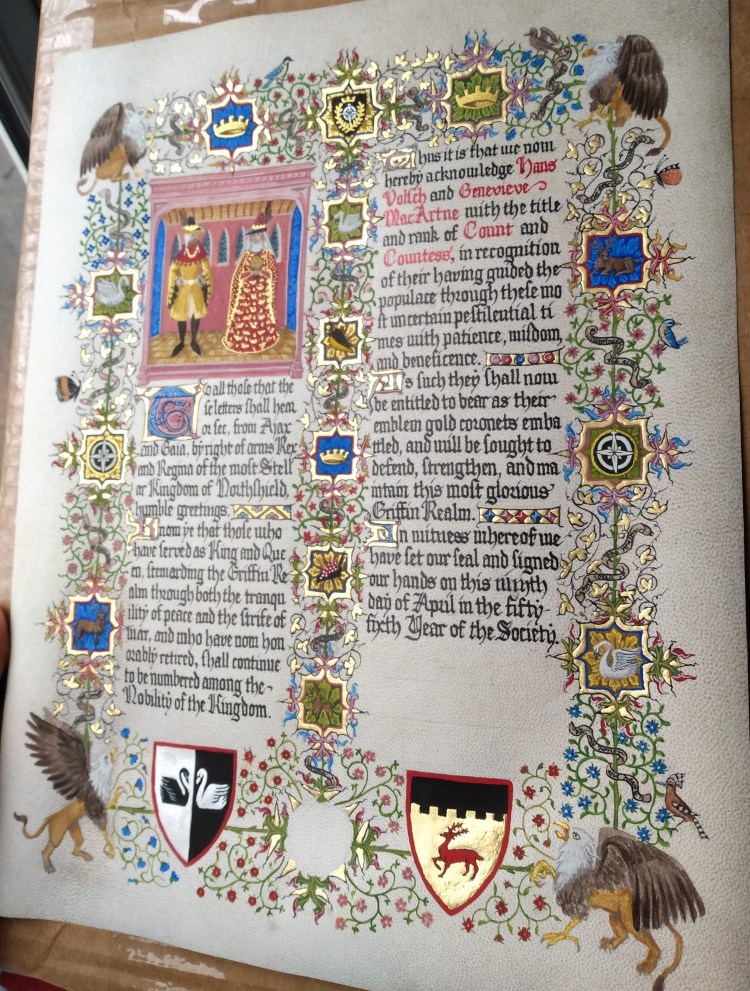 To all those that the
se letters shall hear
or see, from Ajax
and Gaia, by right of arms Rex
and Regina of the most Stell
ar Kingdom of Northshield,
humble greetings.
Know ye that those who
have served as King and Que
en, stewarding the Griffin Re
alm through both the tranqu
ility of peace and the strife of
war, and who have now hon
orably retired, shall continue
to be numbered among the
Nobility of the Kingdom.
Thus it is that we now
hereby acknowledge Hans
and Genevieve
MacArtne with the title
and rank of Count and
Countess, in recognition
of their having guided the
populace through these mo
st uncertain pestilential ti
mes with patience, wisdom,
and beneficence.
As such they shall now
be entitled to bear as their
emblem gold coronets emba
ttled, and will be sought to
defend, strengthen, and ma
intain this most glorious
Griffin Realm.
In witness whereof we
have set our seal and signed
our hands on this ninth
day of April in the fifty
sixth Year of the Society.